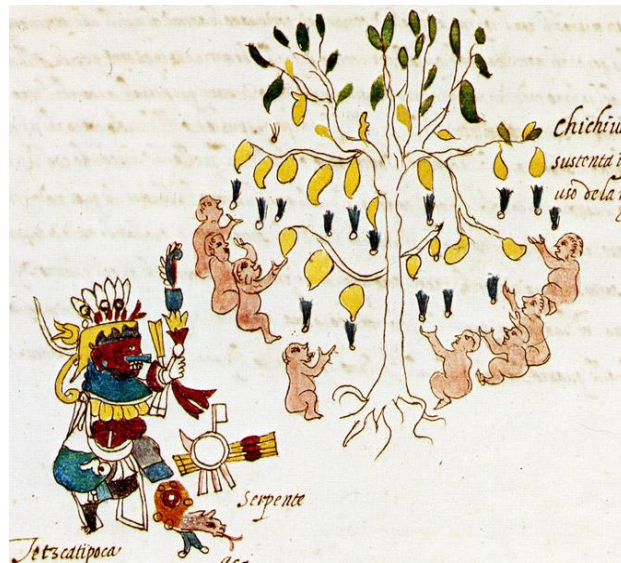 Chichiu
sustenta i
uso de la
Serpente
Tetzcatipoca